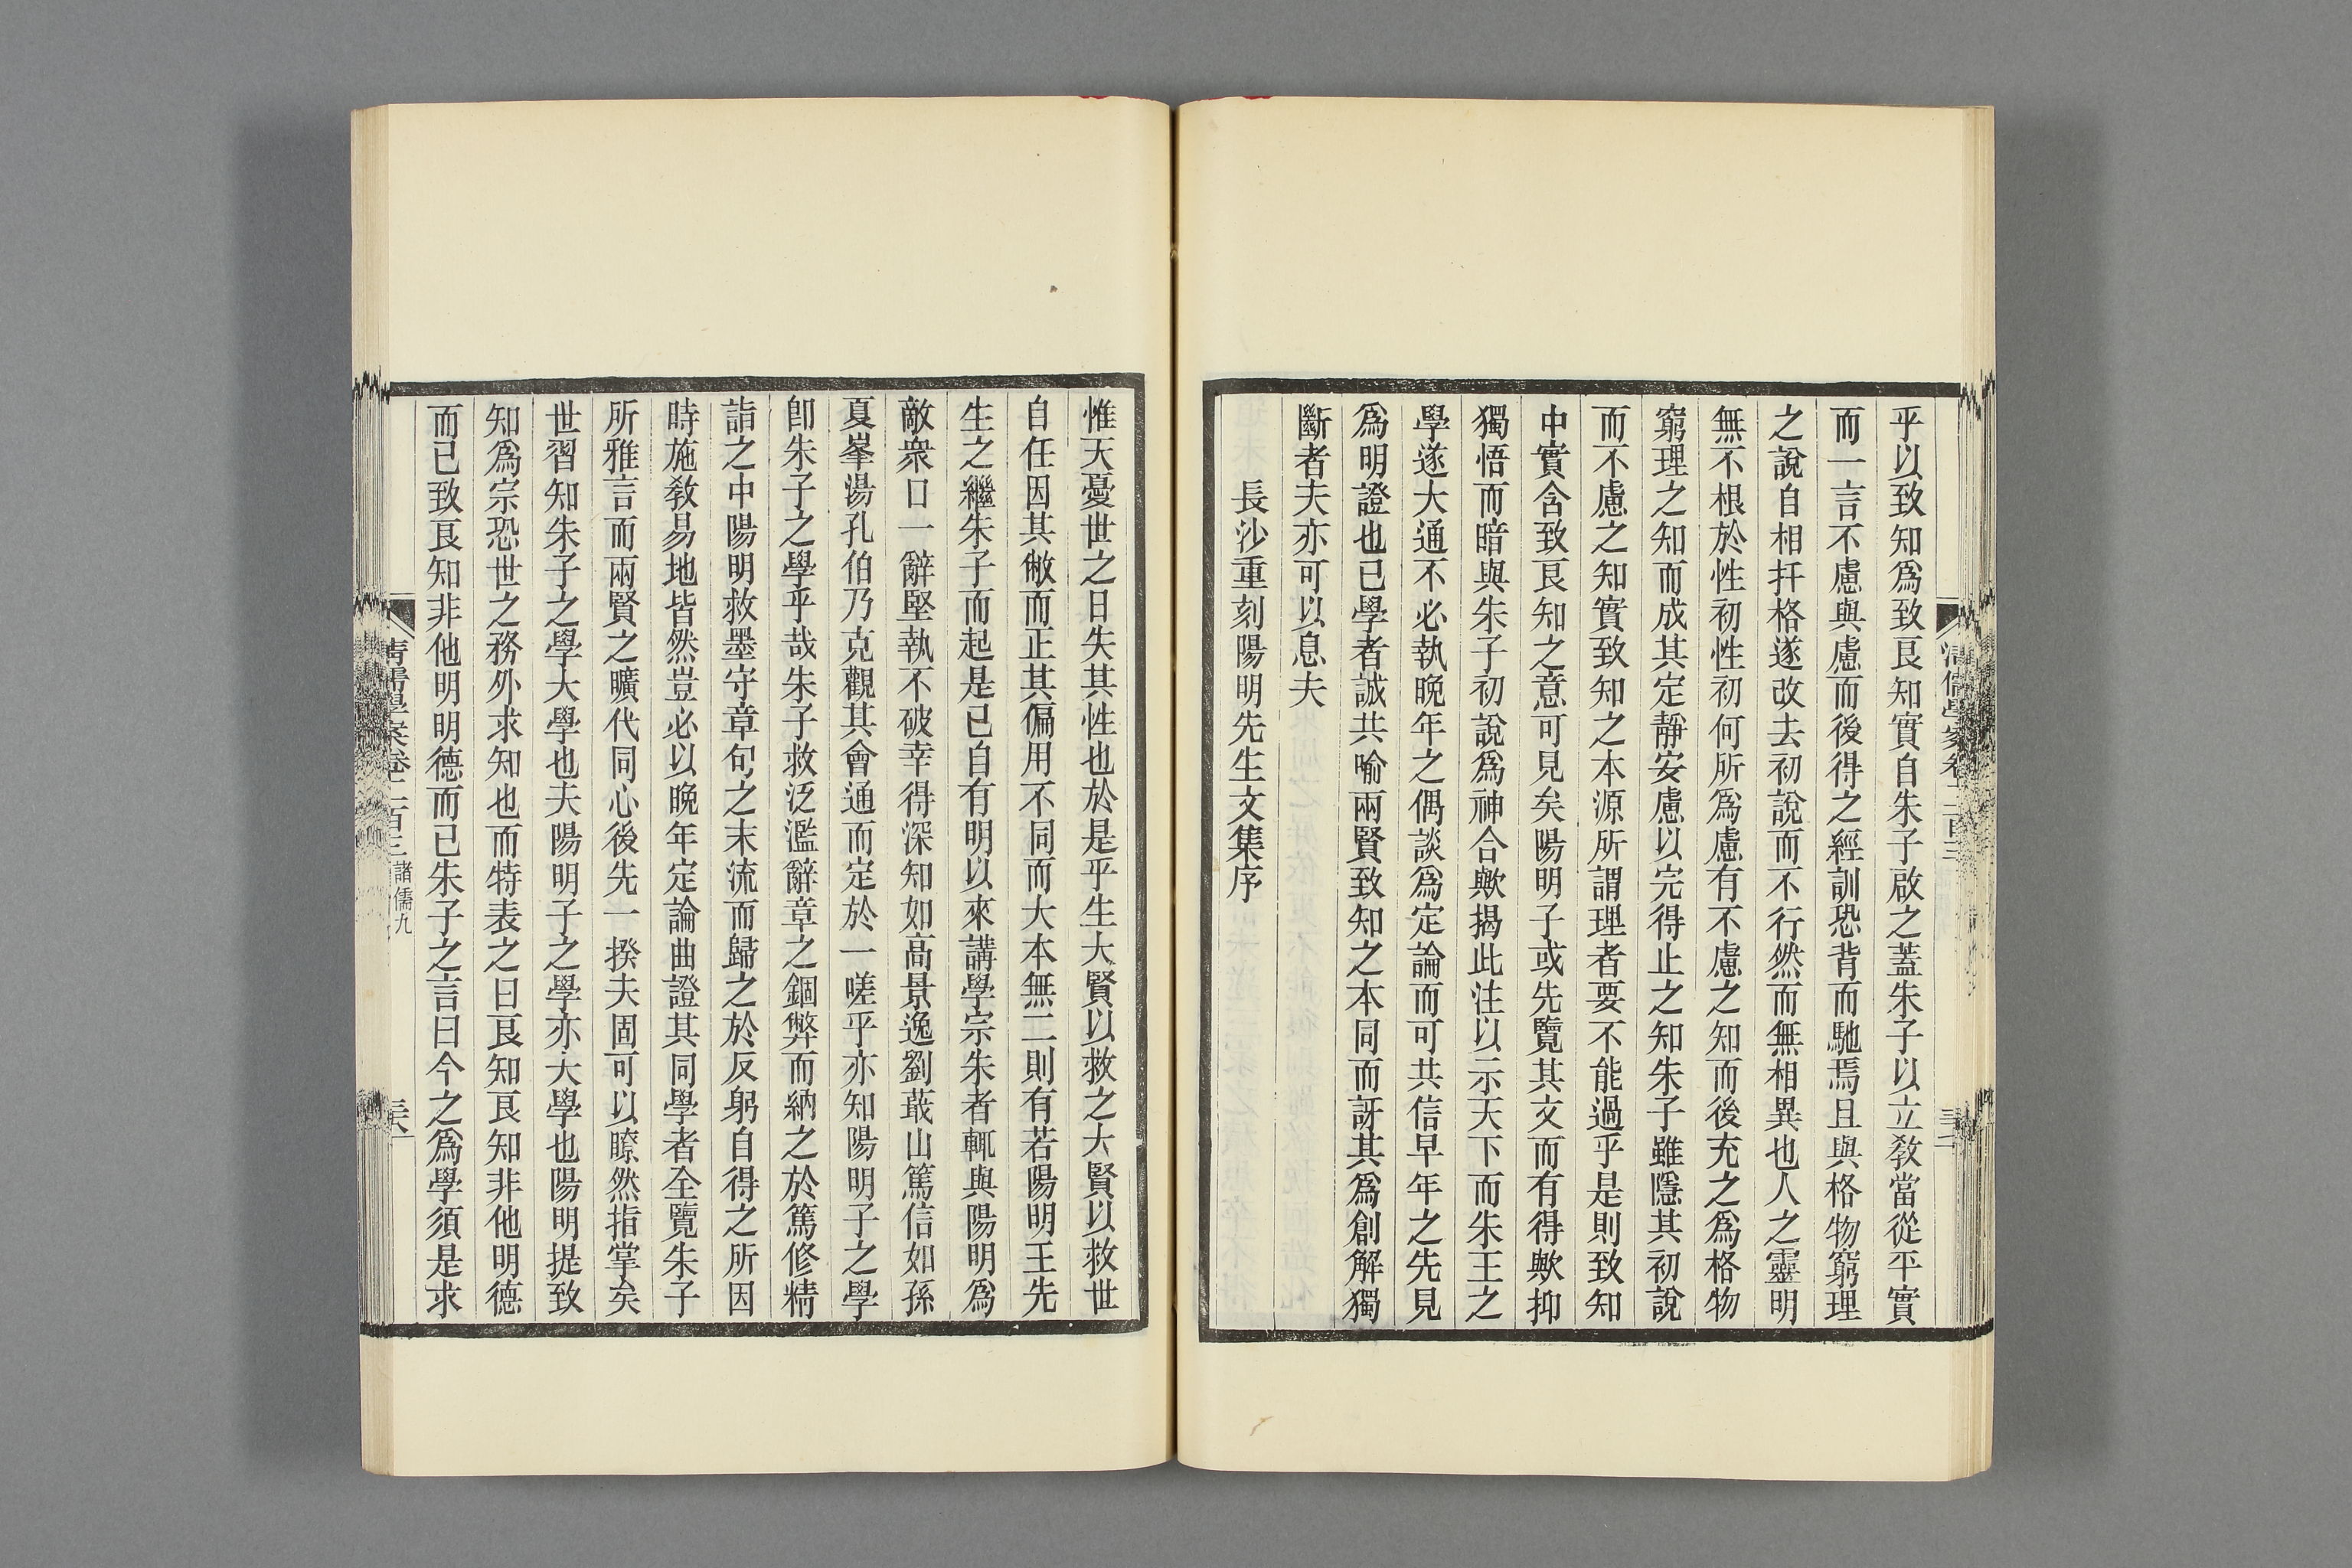 乎以致知爲致良知實自朱子啟之蓋朱子以立敎當從平實
而一言不慮與慮而後得之經訓恐背而馳焉且與格物窮理
之說自相扞格遂改去初說而不行然而無相異也人之靈明
無不根於性初性初何所爲慮有不慮之知而後充之爲格物
窮理之知而成其定靜安慮以完得止之知朱子雖隱其初說
而不慮之知實致知之本源所謂理者要不能過乎是則致知
中實含致良知之意可見矣陽明子或先覽其文而有得歟抑
獨悟而暗與朱子初說爲神合歟揭此注以示天下而朱王之
學遂大通不必執晚年之偶談爲定論而可共信早年之先見
爲明證也已學者誠共喻兩賢致知之本同而訝其爲創解獨
斷者夫亦可以息夫
長沙重刻陽明先生文集序
惟天憂世之日失其性也於是乎生大賢以救之大賢以救世
自任因其敝而正其偏用不同而大本無二則有若陽明王先
生之繼朱子而起是已自有明以來講學宗朱者輒與陽明爲
敵衆口一辭堅執不破幸得深知如高景逸劉蕺山篤信如孫
夏峯湯孔伯乃克觀其會通而定於一嗟乎亦知陽明子之學
卽朱子之學乎哉朱子救泛濫辭章之錮弊而納之於篤修精
詣之中陽明救墨守章句之末流而歸之於反躬自得之所因
時施敎易地皆然豈必以晚年定論曲證其同學者全覽朱子
所雅言而兩賢之曠代同心後先一揆夫固可以瞭然指掌矣
世習知朱子之學大學也夫陽明子之學亦大學也陽明提致
知爲宗恐世之務外求知也而特表之曰良知良知非他明德
而已致良知非他明明德而已朱子之言曰今之爲學須是求
清儒學案卷二百三 諸儒九